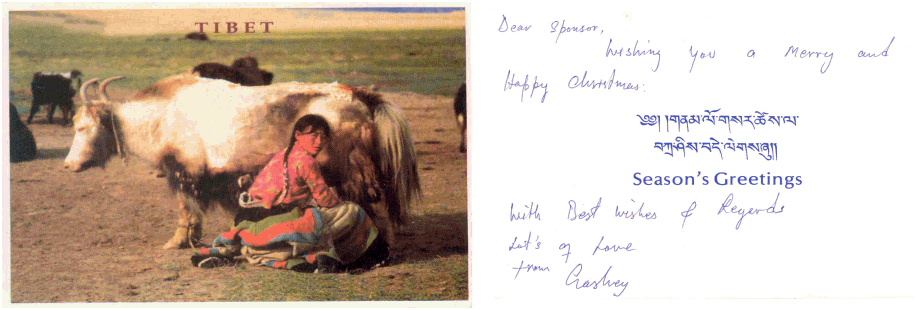 TIBET
Dear Sponsor,
Wishing you a Merry and
Happy Christmas.
༄༅། །གནམ་ལོ་གསར་ཚེས་ལ་
བཀྲ་ཤིས་བདེ་ལེགས་ཞུ།།
Season's Greetings
With Best wishes & Regards
Lot's of Love
from